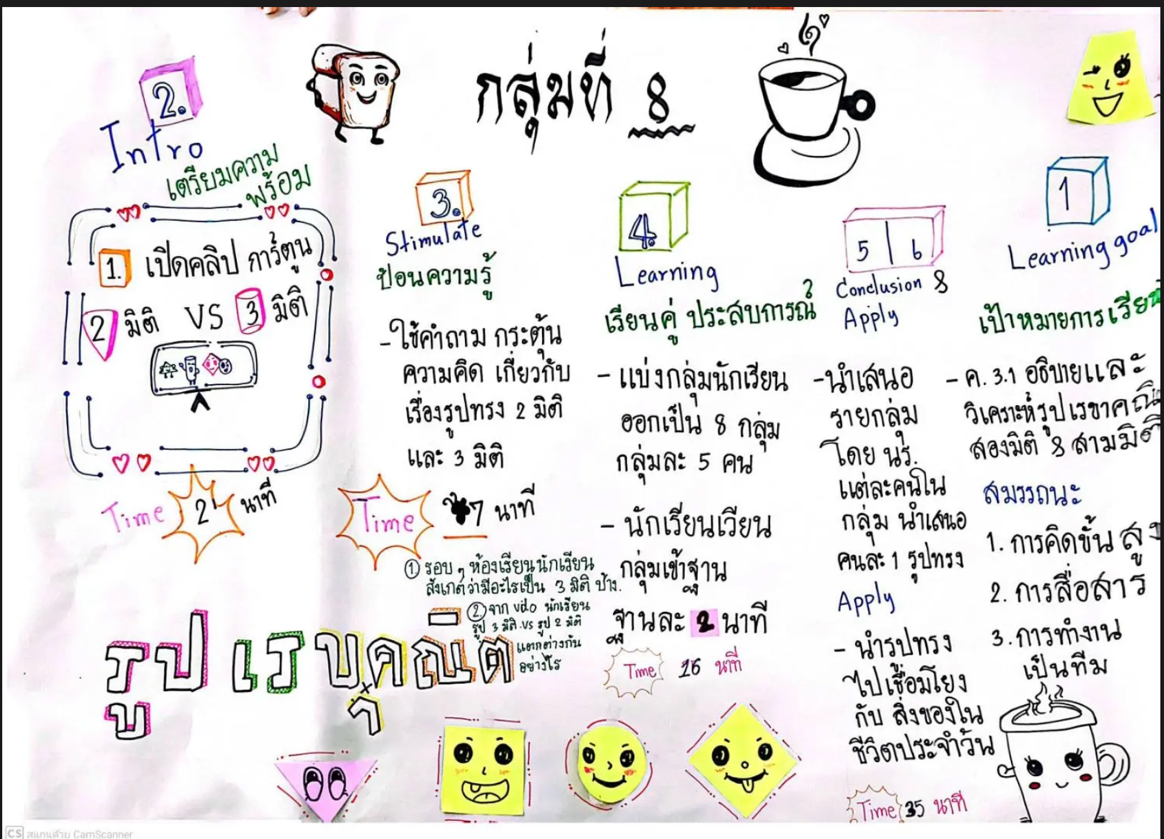 กลุ่มที่ 8
1
Learning goal
เป้าหมายการเรียน
- ค. 3.1 อธิบายและ
วิเคราะห์รูปเรขาคณิ
สองมิติ & สามมิติ
สมรรถนะ
1. การคิดขั้นสูง
2. การสื่อสาร
3. การทำงาน
เป็นทีม
2.
Intro
เตรียมความ
พร้อม
1. เปิดคลิป การ์ตูน
2 มิติ VS 3 มิติ
Time 2 นาที
3.
Stimulate
ป้อนความรู้
- ใช้คำถาม กระตุ้น
ความคิด เกี่ยวกับ
เรื่องรูปทรง 2 มิติ
และ 3 มิติ
Time 7 นาที
① รอบๆ ห้องเรียนนักเรียน
สังเกตว่ามีอะไรเป็น 3 มิติ บ้าง.
② จาก vdo นักเรียน
รูป 3 มิติ vs รูป 2 มิติ
แตกต่างกัน
อย่างไร
4.
Learning
เรียนคู่ ประสบการณ์
- แบ่งกลุ่มนักเรียน
ออกเป็น 8 กลุ่ม
กลุ่มละ 5 คน
- นักเรียนเวียน
กลุ่มเข้าฐาน
ฐานละ 2 นาที
Time 16 นาที
5 | 6
Conclusion &
Apply
- นำเสนอ
รายกลุ่ม
โดย นร.
แต่ละคนใน
กลุ่ม นำเสนอ
คนละ 1 รูปทรง
Apply
- นำรูปทรง
ไปเชื่อมโยง
กับ สิ่งของใน
ชีวิตประจำวัน
Time 35 นาที
รูป เร
CS สแกนด้วย CamScanner